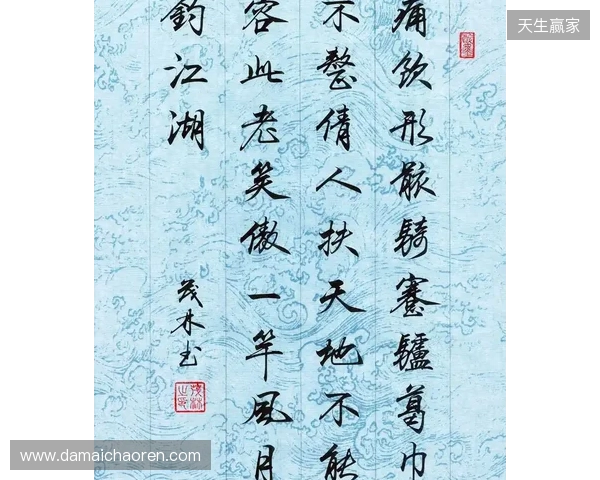 天生赢家
痛飲形骸騎蹇驢葛巾
不整倩人扶天地不能
容此老笑傲一竿風月
釣江湖
茂林书
www.damaichaoren.com